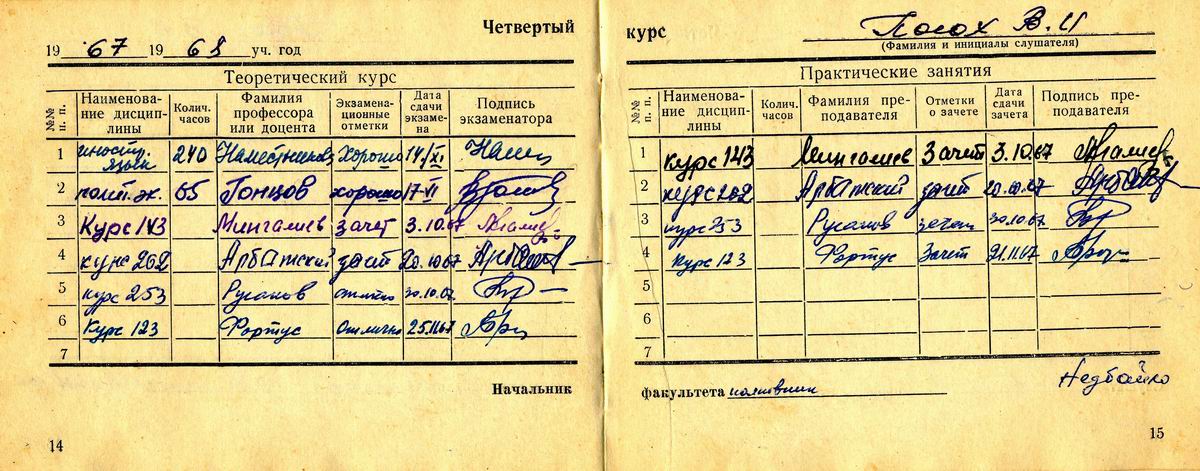 Четвертый курс
Посох В.И
(Фамилия и инициалы слушателя)
1967 1968 уч. год
Теоретический курс
№№ п. п. Наименование дисциплины Колич. часов Фамилия профессора или доцента Экзаменационные отметки Дата сдачи экзамена Подпись экзаменатора
1 иностр. язык 240 Наместников хорошо 14/XI
2 полит. эк. 65 Гонцов хорошо 17-VI
3 Курс 143 Мингалиев зачет 3.10.67
4 курс 262 Арбатский зачет 20.10.67
5 курс 253 Русанов отлично 30.10.67
6 Курс 123 Фортус Отлично 25.11.67
7
Начальник
14
Практические занятия
№№ п. п. Наименование дисциплины Колич. часов Фамилия преподавателя Отметки о зачете Дата сдачи зачета Подпись преподавателя
1 курс 143 Мингалиев Зачет 3.10.67
2 курс 262 Арбатский зачет 20.10.67
3 курс 253 Русанов зачет 30.10.67
4 Курс 123 Фортус Зачет 21.11.67
5
6
7
факультета полковник Недбайло
15